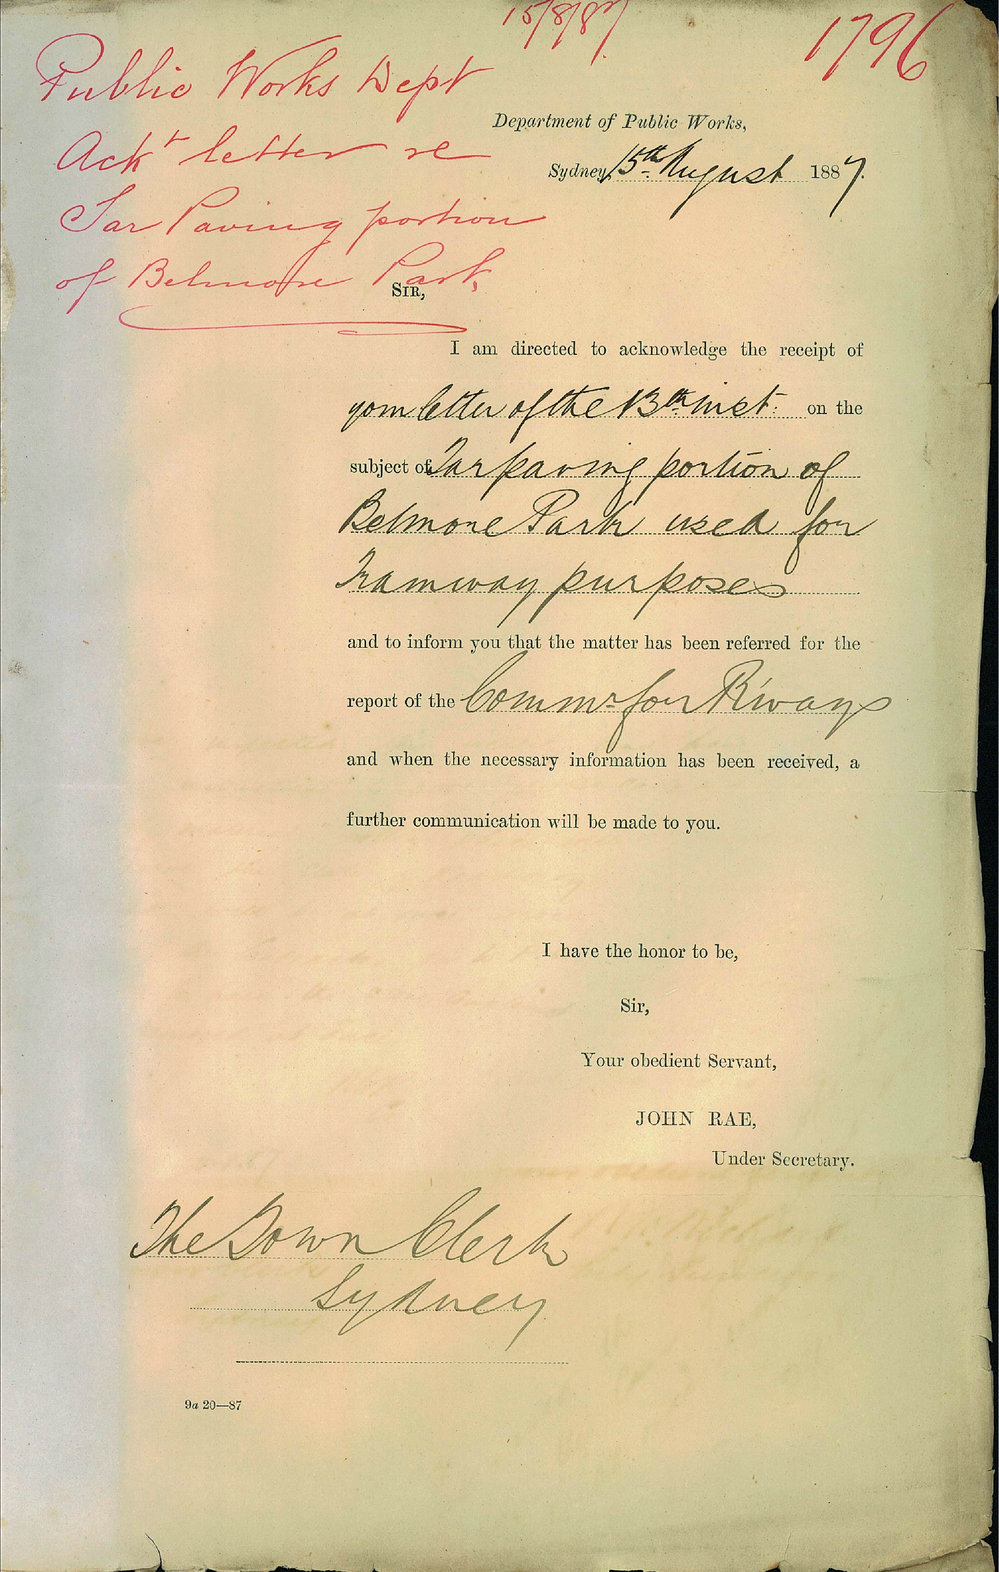 15/8/87
1796
Public Works Dept
Ackt letter re
Tar Paving portion
of Belmore Park,
Department of Public Works,
Sydney, 15th August 1887.
SIR,
I am directed to acknowledge the receipt of
your letter of the 13th inst. on the
subject of Tar paving portion of
Belmore Park used for
Tramway purposes
and to inform you that the matter has been referred for the
report of the Commr for R'ways
and when the necessary information has been received, a
further communication will be made to you.
I have the honor to be,
Sir,
Your obedient Servant,
JOHN RAE,
Under Secretary.
The Town Clerk
Sydney
9a 20—87